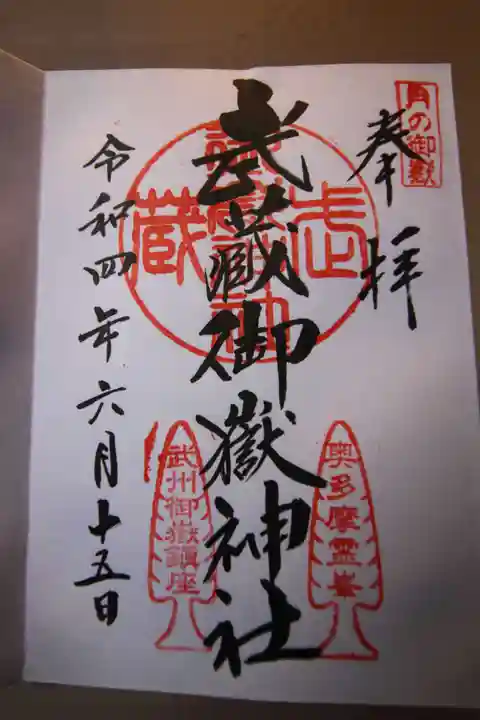 月の御嶽
奉拝
武蔵御嶽神社
武蔵
奥多摩霊峯
武州御嶽鎮座
令和四年六月十五日